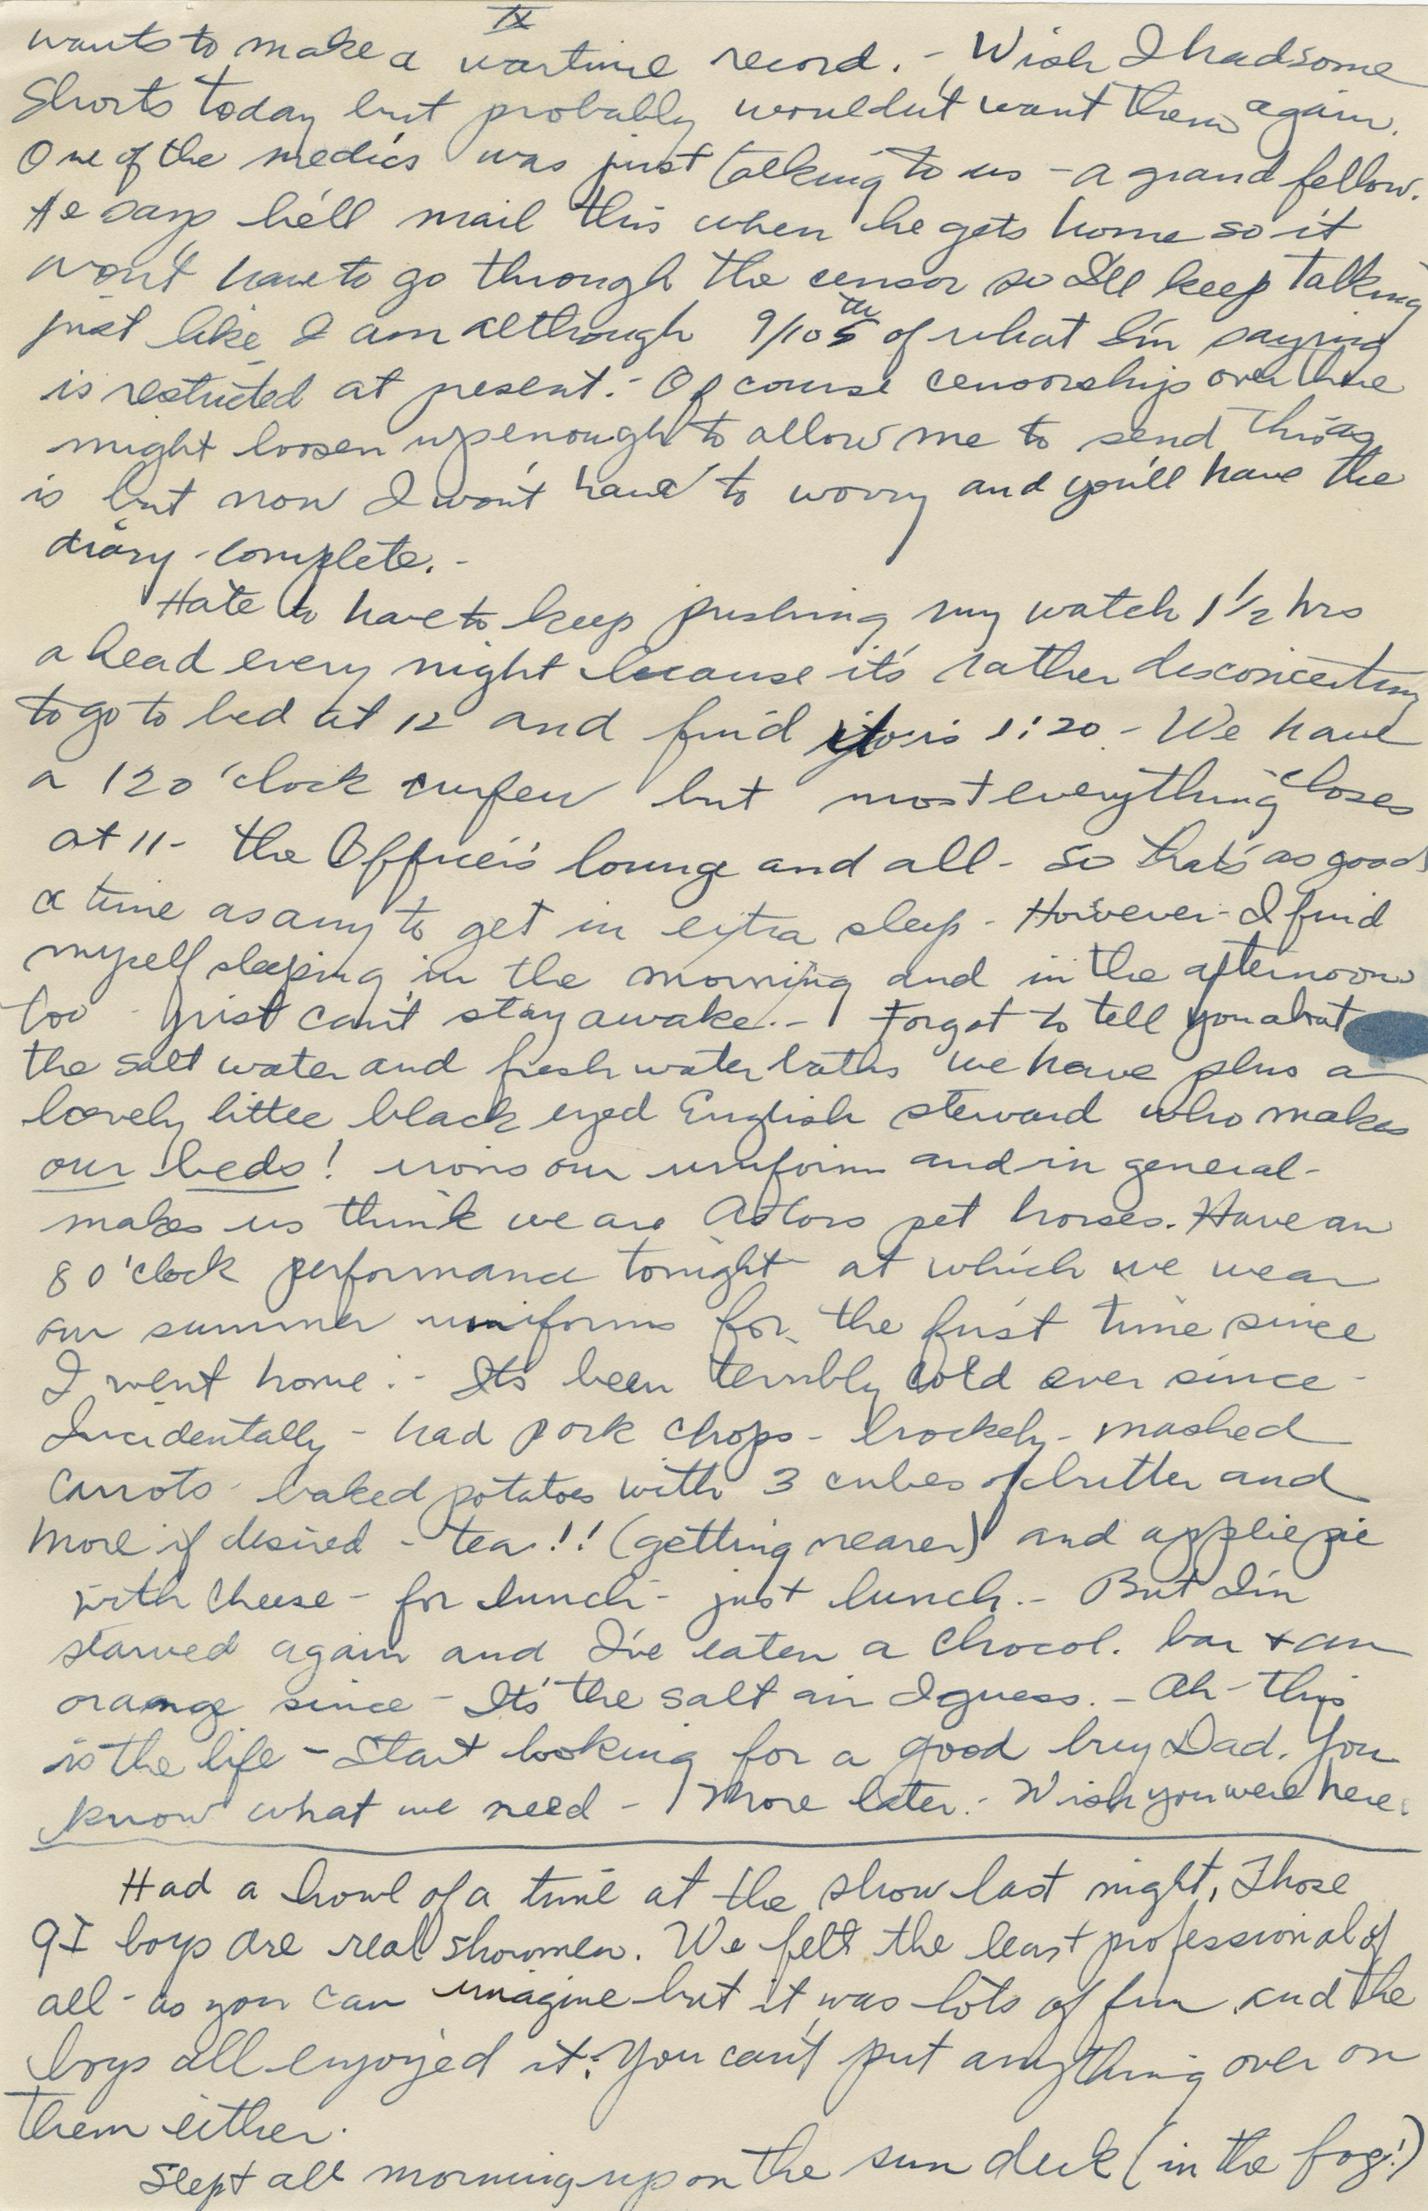 IX
wants to make a wartime record. - Wish I had some
Shorts today but probably wouldn't want them again.
One of the medics was just talking to us - a grand fellow.
He says he'll mail this when he gets home so it
won't have to go through the censor so I'll keep talking
just like I am although 9/10ths of what I'm saying
is restricted at present. - Of course censorship over here
might loosen up enough to allow me to send this as
is but now I won't have to worry and you'll have the
diary - complete. -
Hate to have to keep pushing my watch 1 1/2 hrs
ahead every night because it's rather disconcerting
to go to bed at 12 and find it is 1:20 - We have
a 12 o'clock curfew but most everything closes
at 11 - the Officer's lounge and all - so that's as good
a time as any to get in extra sleep - However - I find
myself sleeping in the morning and in the afternoon
too - just can't stay awake. - Forgot to tell you about
the salt water and fresh water baths we have plus a
lovely little black eyed English steward who makes
our beds! irons our uniform and in general -
makes us think we are Astors pet horses. Have an
8 o'clock performance tonight at which we wear
our summer uniforms for the first time since
I went home. - It's been terribly cold ever since -
Incidentally - had pork chops - brockely - mashed
carrots - baked potatoes with 3 cubes of butter and
more if desired - tea!! (getting nearer) and applie pie
with cheese - for lunch - just lunch. - But I'm
starved again and I've eaten a chocol. bar + an
orange since - It's the salt air I guess. - Ah - this
is the life - Start looking for a good buy Dad. You
know what we need - More later. - Wish you were here.
Had a howl of a time at the show last night. Those
GI boys are real showmen. We felt the least professional of
all - as you can imagine but it was lots of fun and the
boys all enjoyed it. You can't put anything over on
them either.
Slept all morning up on the sun deck (in the fog!)